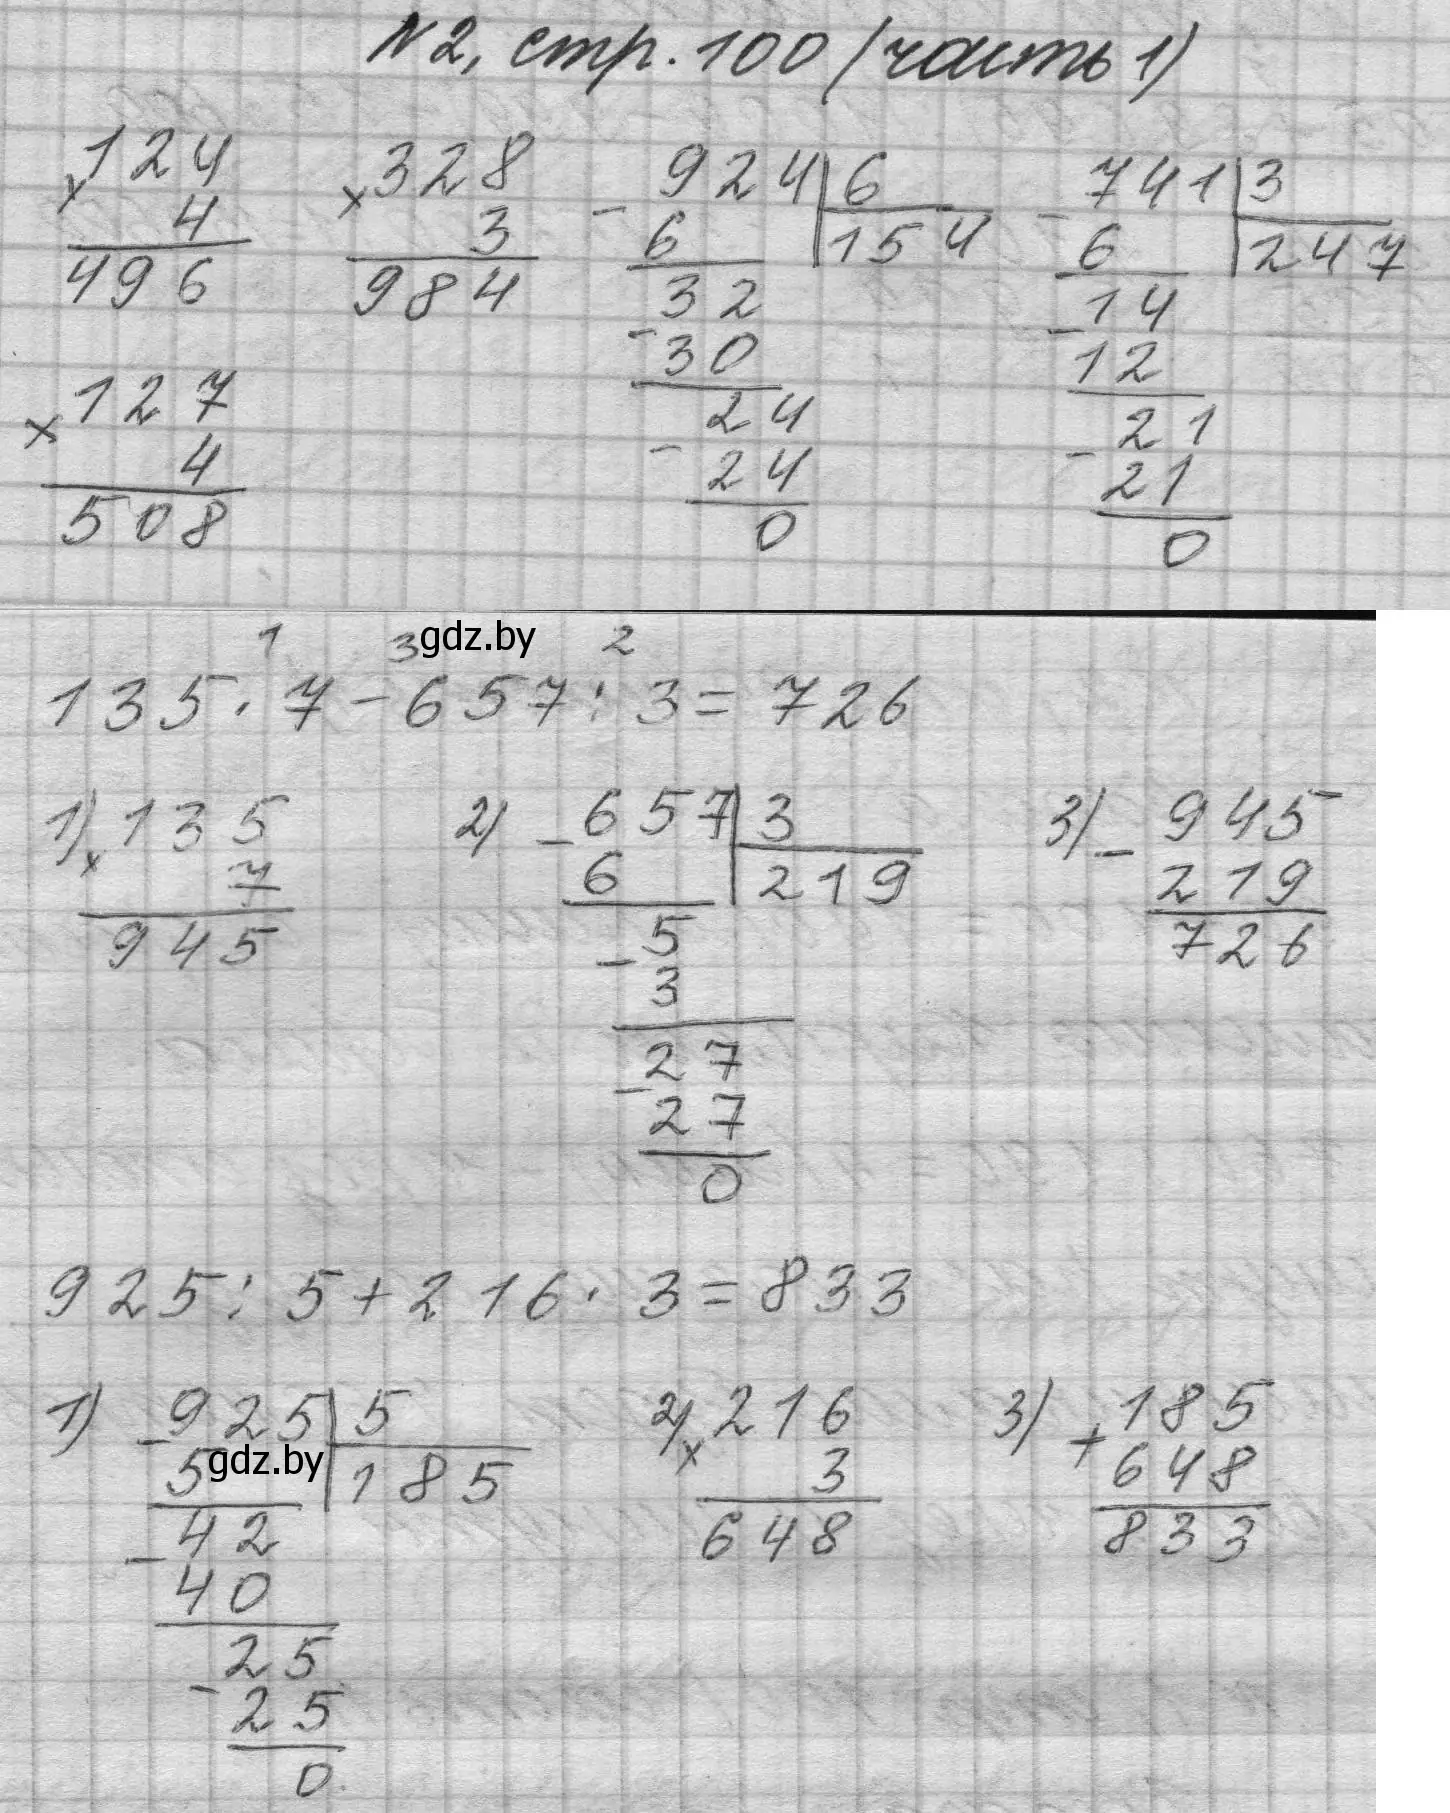 N2, стр. 100 (часть 1)
× 124
4
496
× 328
3
984
- 924 | 6
6 | 154
32
- 30
24
- 24
0
- 741 | 3
6 | 247
14
- 12
21
- 21
0
× 127
4
508
gdz.by
1 3 2
135 · 7 - 657 : 3 = 726
1) × 135
7
945
2) - 657 | 3
6 | 219
5
- 3
27
- 27
0
3) - 945
219
726
925 : 5 + 216 · 3 = 833
1) - 925 | 5
5 | 185
gdz.by
42
- 40
25
- 25
0
2) × 216
3
648
3) + 185
648
833